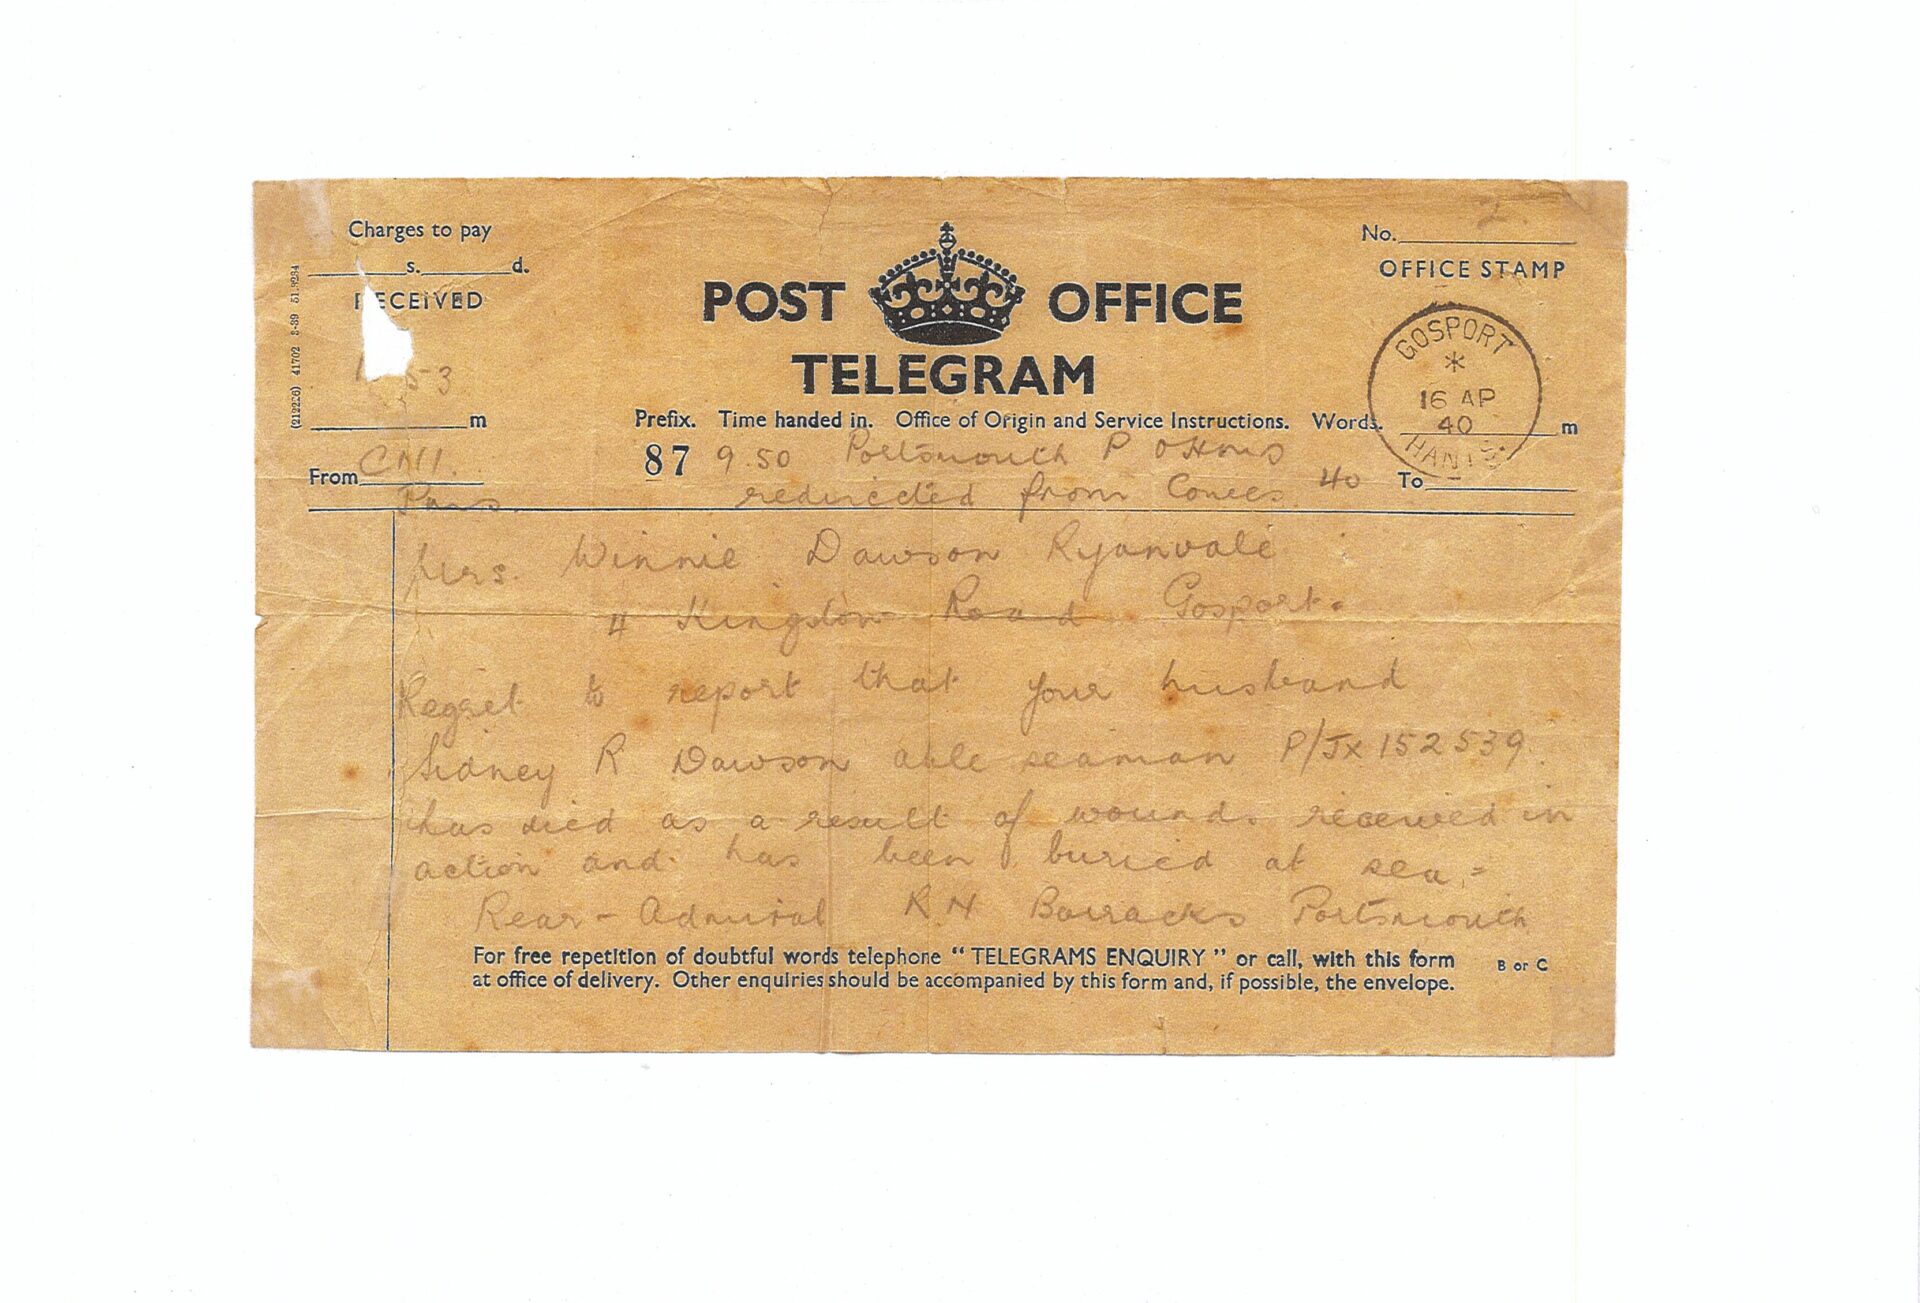 Charges to pay
s. d.
RECEIVED
53
m
From
(212226) 41702 3-39
POST OFFICE
TELEGRAM
Prefix. Time handed in. Office of Origin and Service Instructions. Words.
No. 2.
OFFICE STAMP
GOSPORT
16 AP
40
HANTS
m
To
87 9.50 Portsmouth P OHMS
redirected from Cowes 40
Mrs. Winnie Dawson Ryanvale
Kingston Road Gosport.
Regret to report that your husband
Sidney R Dawson able seaman P/Jx 152539.
has died as a result of wounds received in
action and has been buried at sea =
Rear-Admiral RN Barracks Portsmouth
For free repetition of doubtful words telephone "TELEGRAMS ENQUIRY" or call, with this form
at office of delivery. Other enquiries should be accompanied by this form and, if possible, the envelope.
B or C